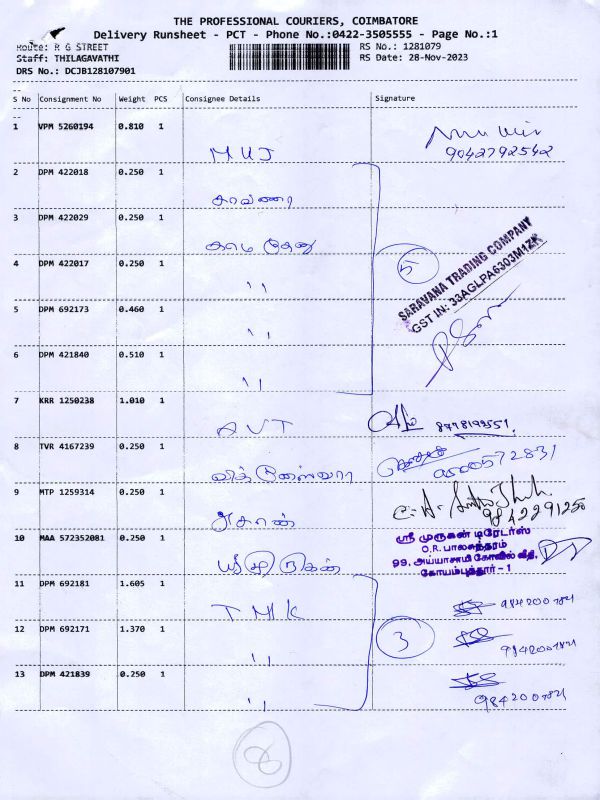 THE PROFESSIONAL COURIERS, COIMBATORE
Delivery Runsheet - PCT - Phone No.:0422-3505555 - Page No.:1
Route: R G STREET
RS No.: 1281079
Staff: THILAGAVATHI
RS Date: 28-Nov-2023
DRS No.: DCJB128107901
S No Consignment No Weight PCS Consignee Details Signature
1 VPM 5260194 0.810 1 MUJ
9042792542
2 DPM 422018 0.250 1
3 DPM 422029 0.250 1
5
SARAVANA TRADING COMPANY
GST IN: 33AGLPA6303M1ZK
4 DPM 422017 0.250 1 ''
5 DPM 692173 0.460 1 ''
6 DPM 421840 0.510 1 ''
7 KRR 1250238 1.010 1 AVT
8 TVR 4167239 0.250 1
9 MTP 1259314 0.250 1 அசோன்
9842291250
10 MAA 572352081 0.250 1 ஸ்ரீ முருகன்
ஸ்ரீ முருகன் டிரேடர்ஸ்
O.R. பாலசுந்தரம்
99, அய்யாசாமி கோவில் வீதி,
கோயம்புத்தூர் - 1
11 DPM 692181 1.605 1 TMK
12 DPM 692171 1.370 1 ''
3
13 DPM 421839 0.250 1 ''
8